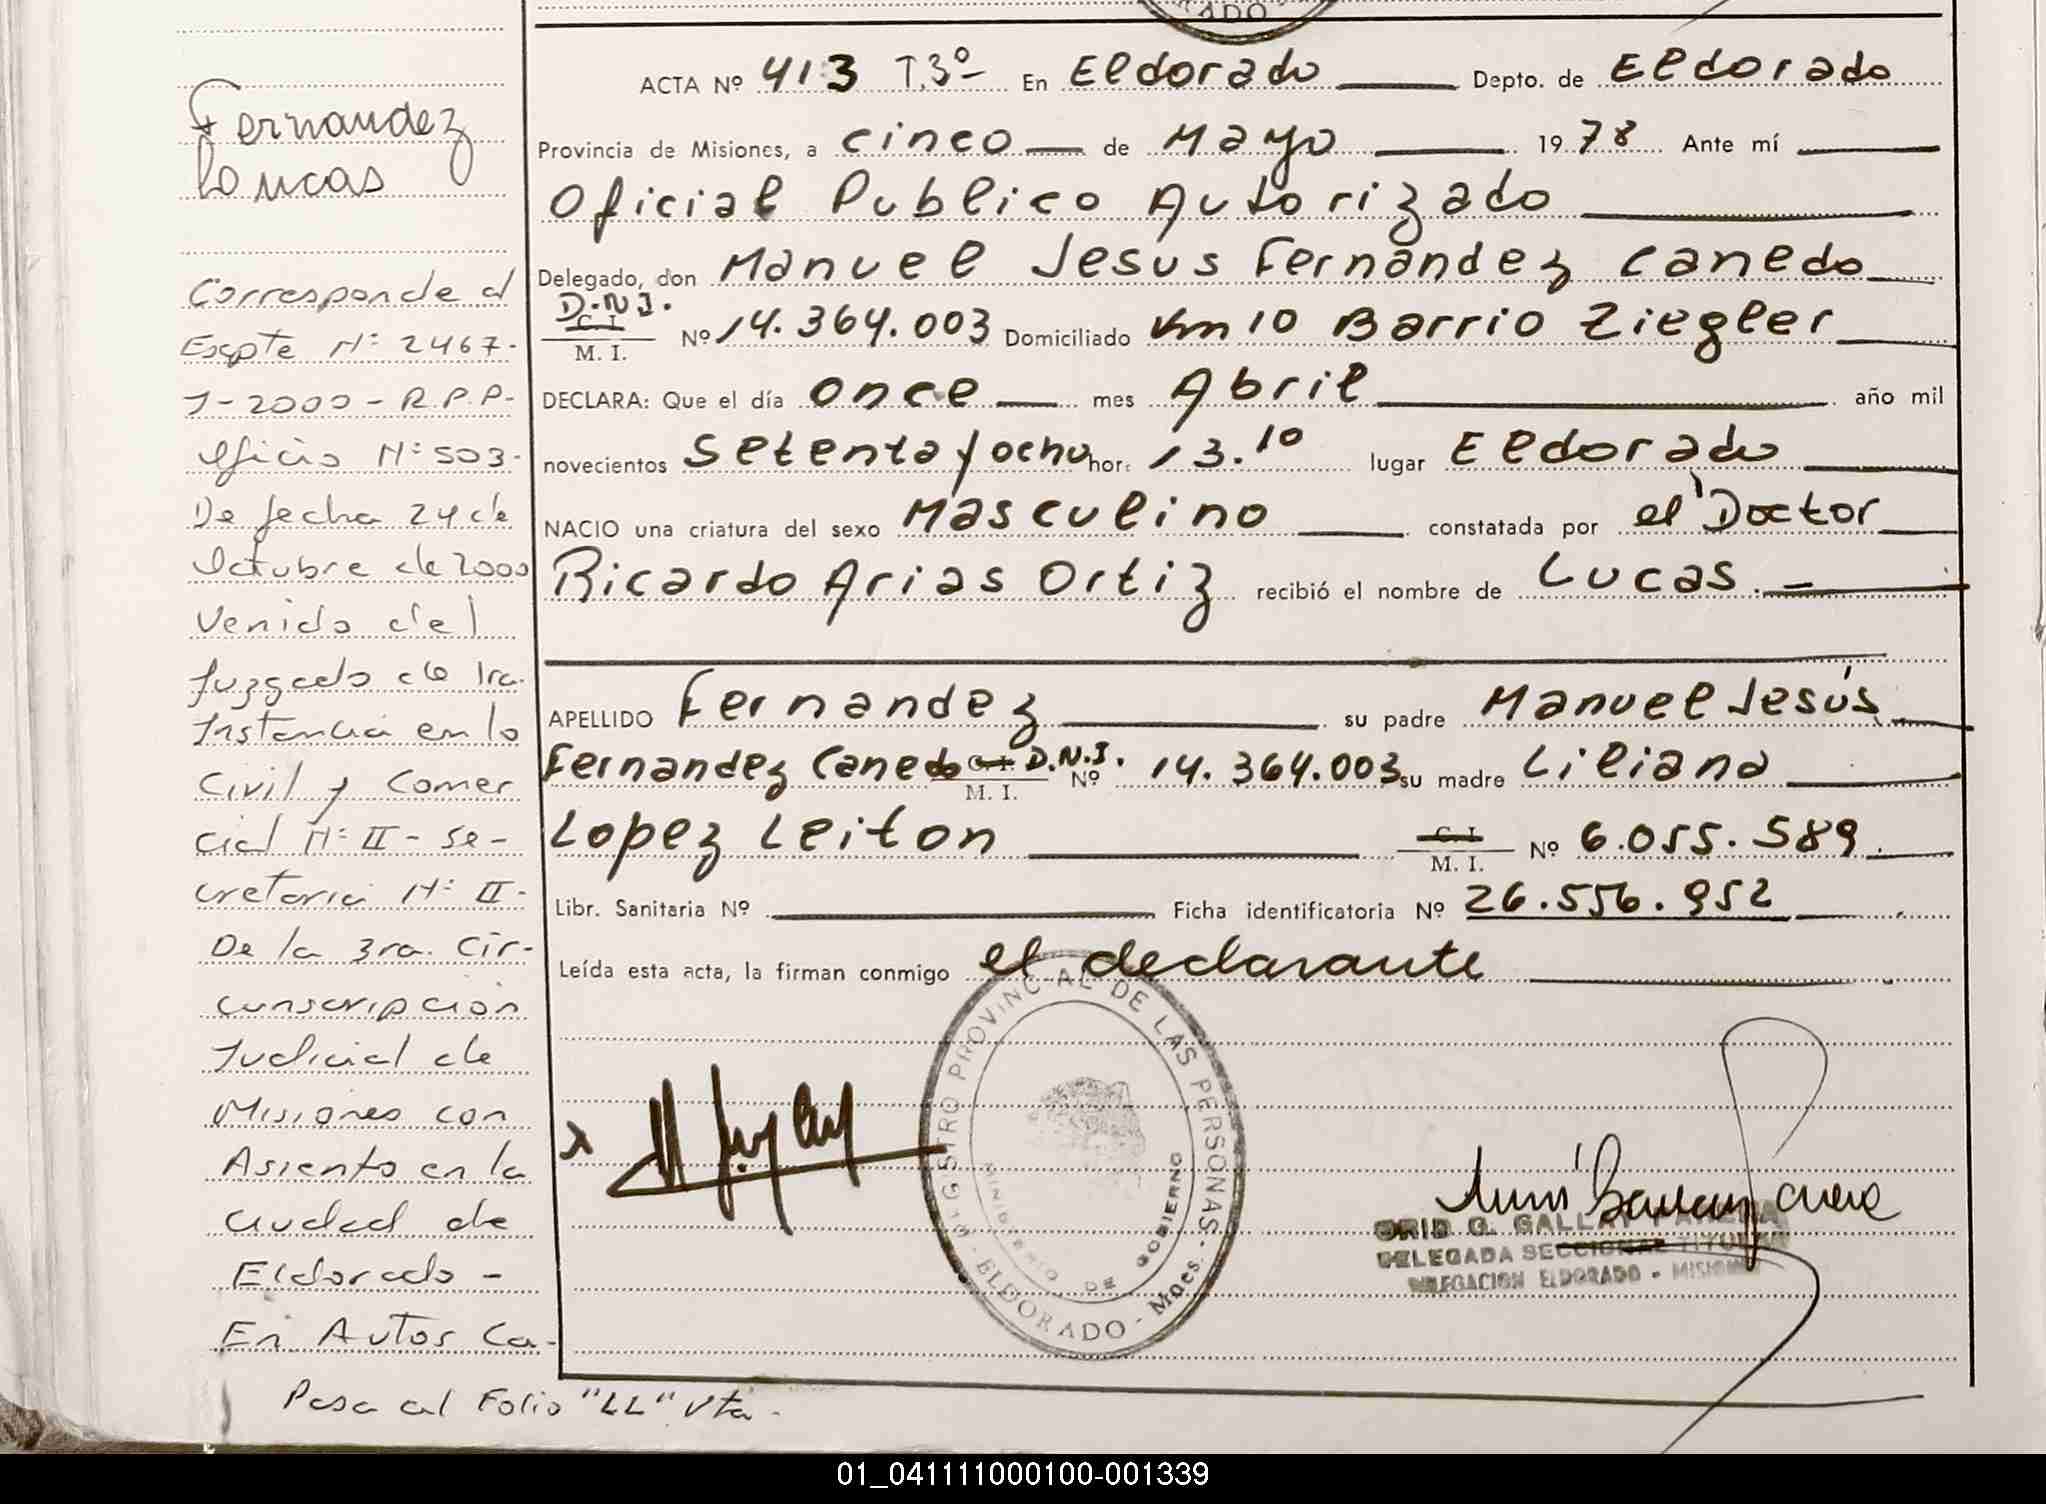 ADO
ACTA Nº 413 T.3º- En Eldorado Depto. de Eldorado
Provincia de Misiones, a cinco de Mayo 1978 Ante mí
Oficial Publico Autorizado
Delegado, don Manuel Jesus Fernandez Canedo
D.N.I.
C. I.
M. I.
Nº 14.364.003 Domiciliado Km 10 Barrio Ziegler
DECLARA: Que el día once mes Abril año mil
novecientos setenta y ocho hor: 13.10 lugar Eldorado
NACIO una criatura del sexo Masculino constatada por el Doctor
Ricardo Arias Ortiz recibió el nombre de Lucas.-
APELLIDO Fernandez su padre Manuel Jesús
Fernandez Canedo C. I. D.N.I. M. I. Nº 14.364.003 su madre Liliana
Lopez Leiton C. I. M. I. Nº 6.055.589
Libr. Sanitaria Nº Ficha identificatoria Nº 26.556.952
Leída esta acta, la firman conmigo el declarante
REGISTRO PROVINCIAL DE LAS PERSONAS
MINISTERIO DE GOBIERNO
- ELDORADO - Mnes. -
G. GALLAY
DELEGADA SECCIONAL TITULAR
DELEGACION ELDORADO - MISIONES
Fernandez
Loucas
Corresponde al
Expte Nº 2467-
J-2000-R.P.P.-
Oficio Nº 503-
De fecha 24 de
Octubre de 2000
Venido del
Juzgado de 1ra.
Instancia en lo
Civil y Comer
cial Nº II - Se-
cretaria Nº II-
De la 3ra. Cir-
cunscripción
Judicial de
Misiones con
Asiento en la
ciudad de
Eldorado -
En Autos Ca-
Pasa al Folio "LL" Vta.
01_041111000100-001339